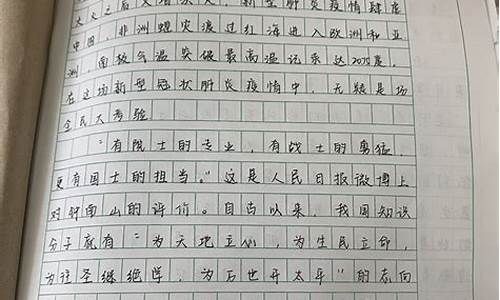 中国,非洲蝗灾渡过红海进入欧洲和亚
洲,南极气温突破最高温记录达20.75度。
在这场新型冠状肺炎疫情中,无疑是场
全民大考验
"有院士的专业,有战士的勇猛,
更有国士的担当。"这是人民日报微博上
对钟南山的评价。自古以来,我国知识
分子就有"为天地立心,为生民立命,
为往圣继绝学,为万世开太平"的志向